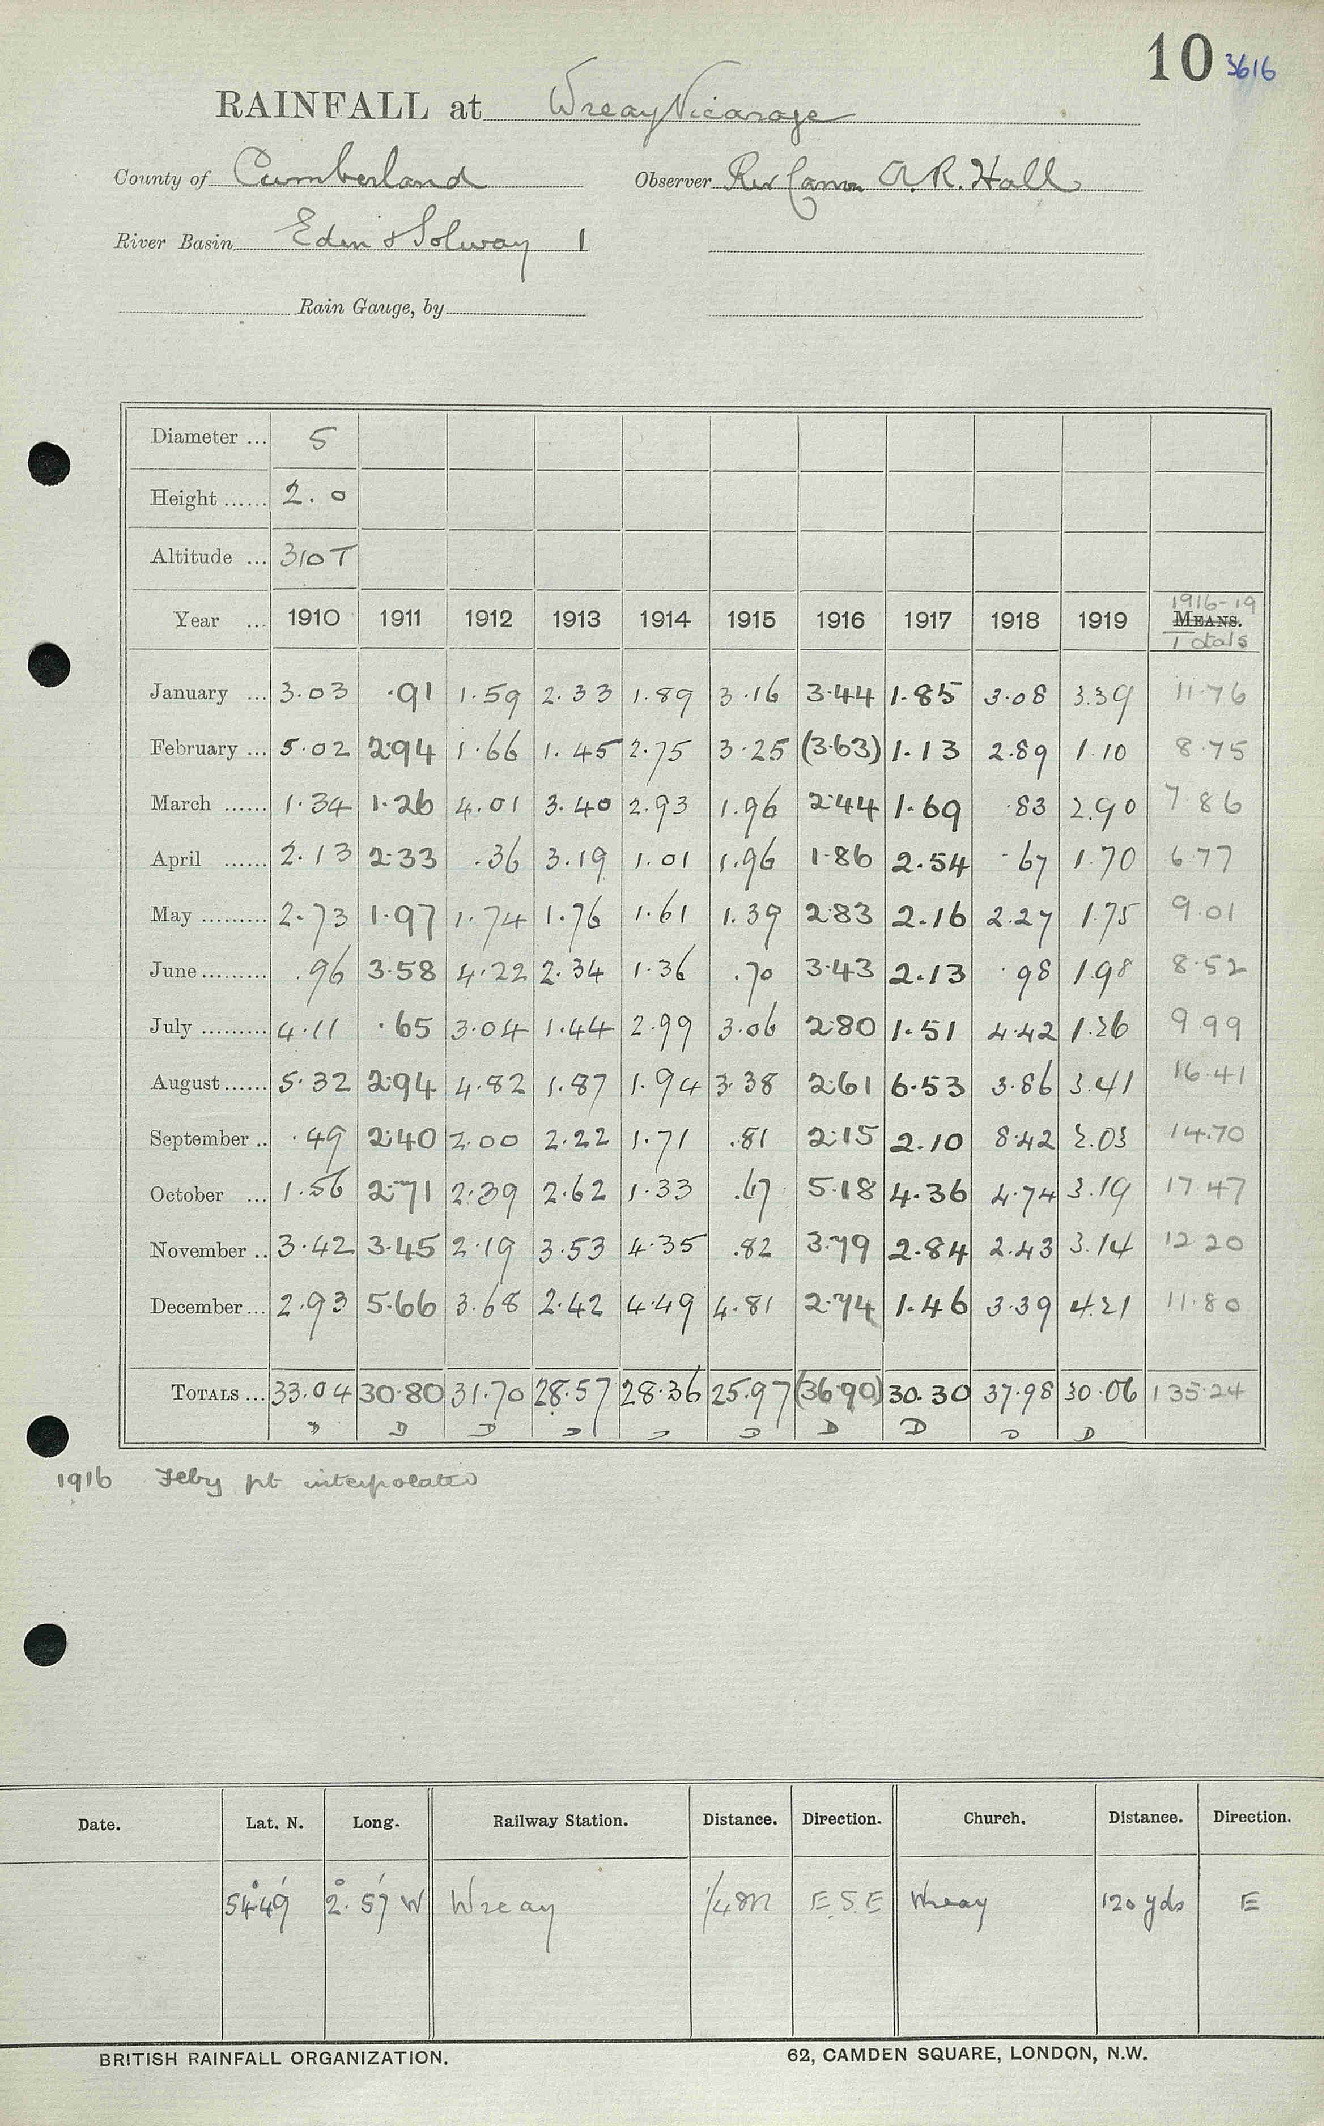 10 3616
RAINFALL at Wreay Vicarage
County of Cumberland Observer Rev Canon A.R. Hall
River Basin Eden & Solway 1
Rain Gauge, by
Diameter ... 5
Height ...... 2.0
Altitude ... 310 T
1916-19
Year ... 1910 1911 1912 1913 1914 1915 1916 1917 1918 1919 MEANS.
Totals
January ... 3.03 .91 1.59 2.33 1.89 3.16 3.44 1.85 3.08 3.39 11.76
February ... 5.02 2.94 1.66 1.45 2.75 3.25 (3.63) 1.13 2.89 1.10 8.75
March ...... 1.34 1.26 4.01 3.40 2.93 1.96 2.44 1.69 .83 2.90 7.86
April ...... 2.13 2.33 .36 3.19 1.01 1.96 1.86 2.54 .67 1.70 6.77
May ......... 2.73 1.97 1.74 1.76 1.61 1.39 2.83 2.16 2.27 1.75 9.01
June ......... .96 3.58 4.22 2.34 1.36 .70 3.43 2.13 .98 1.98 8.52
July ......... 4.11 .65 3.04 1.44 2.99 3.06 2.80 1.51 4.42 1.26 9.99
August ...... 5.32 2.94 4.82 1.87 1.94 3.38 2.61 6.53 3.86 3.41 16.41
September .. .49 2.40 2.00 2.22 1.71 .81 2.15 2.10 8.42 2.03 14.70
October ... 1.56 2.71 2.39 2.62 1.33 .67 5.18 4.36 4.74 3.19 17.47
November .. 3.42 3.45 2.19 3.53 4.35 .82 3.79 2.84 2.43 3.14 12.20
December ... 2.93 5.66 3.68 2.42 4.49 4.81 2.74 1.46 3.39 4.21 11.80
TOTALS ... 33.04 30.80 31.70 28.57 28.36 25.97 (36.90) 30.30 37.98 30.06 135.24
D D D D D D D D D D
1916 Feby pt interpolated
Date. Lat. N. Long. Railway Station. Distance. Direction. Church. Distance. Direction.
54°49' 2°.57' W Wreay 1/4 m E.S.E Wreay 120 yds E
BRITISH RAINFALL ORGANIZATION. 62, CAMDEN SQUARE, LONDON, N.W.